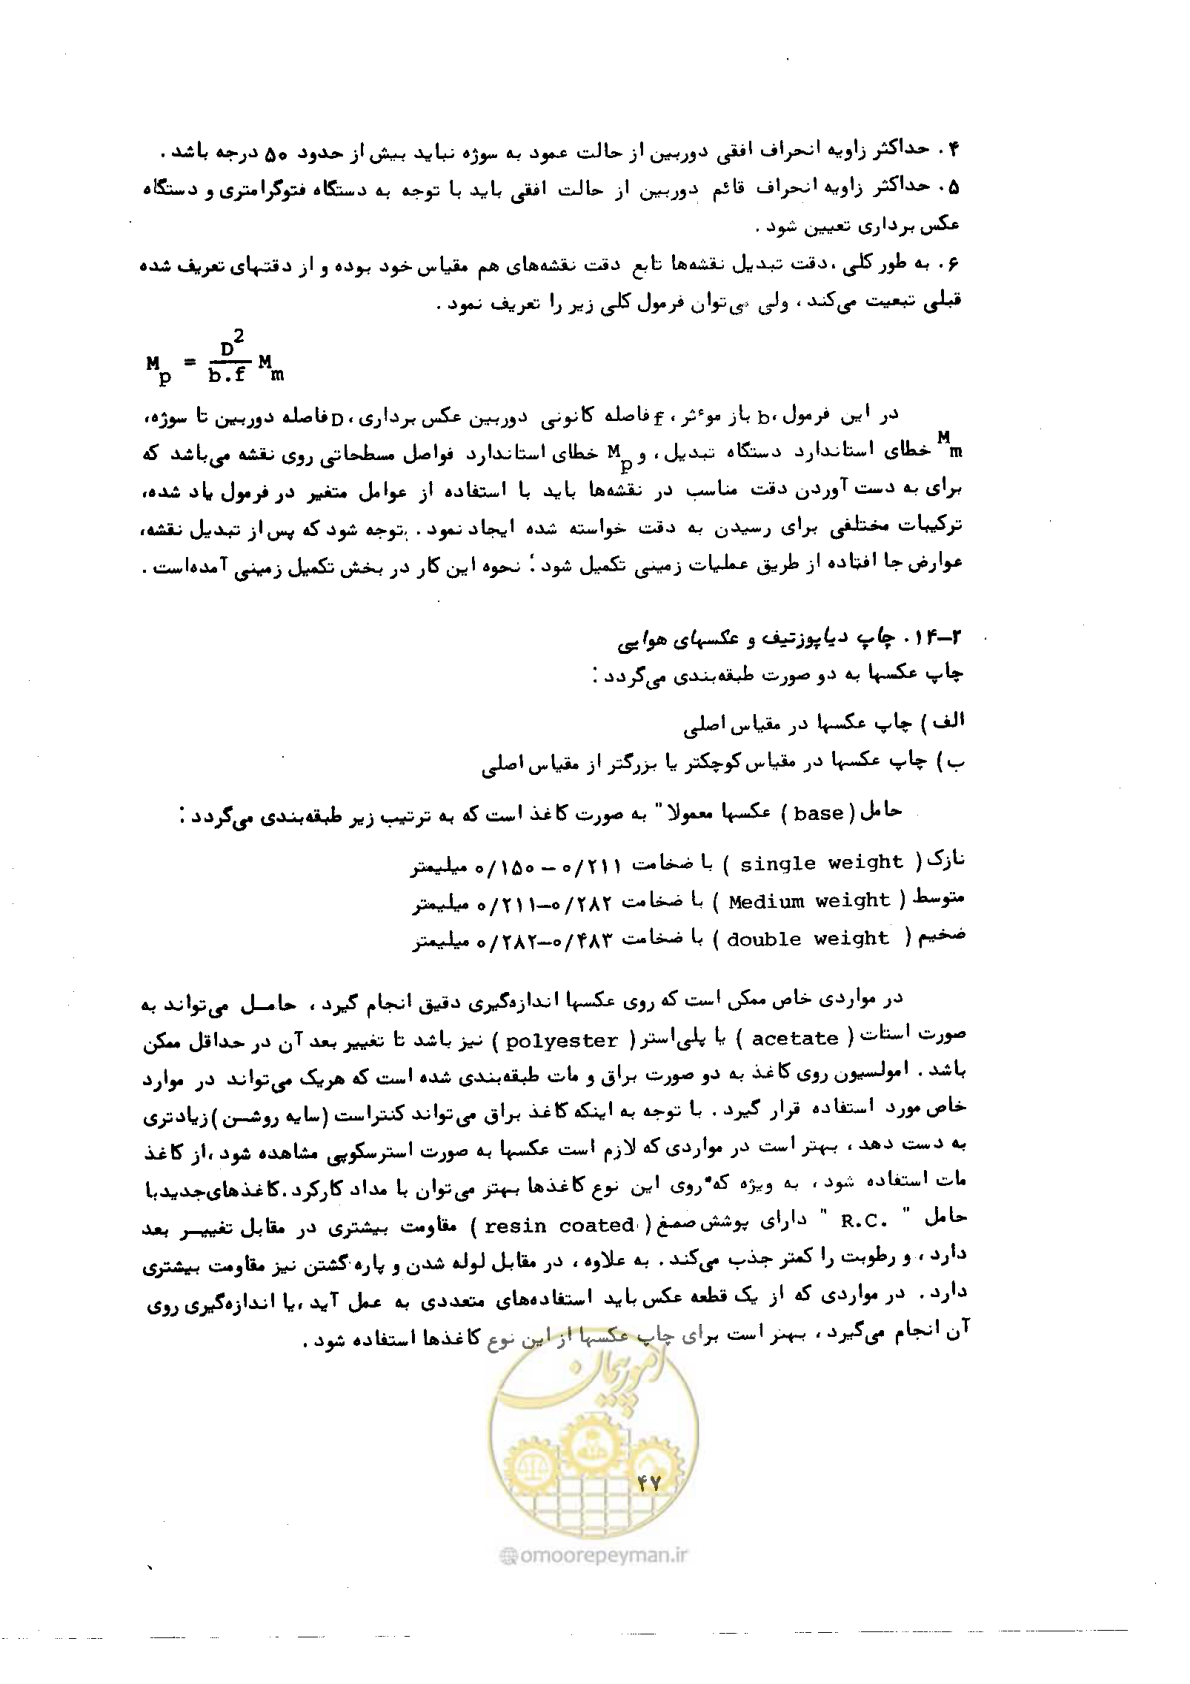 ۴. حداکثر زاویه انحراف افقی دوربین از حالت عمود به سوژه نباید بیش از حدود ۵۰ درجه باشد.
۵. حداکثر زاویه انحراف قائم دوربین از حالت افقی باید با توجه به دستگاه فتوگرامتری و دستگاه
عکس برداری تعیین شود.
۶. به طور کلی، دقت تبدیل نقشه‌ها تابع دقت نقشه‌های هم مقیاس خود بوده و از دقتهای تعریف شده
قبلی تبعیت می‌کند، ولی می‌توان فرمول کلی زیر را تعریف نمود.
M_p = D^2 / b.f M_m
در این فرمول، b باز موءثر، f فاصله کانونی دوربین عکس برداری، D فاصله دوربین تا سوژه،
M_m خطای استاندارد دستگاه تبدیل، و M_p خطای استاندارد فواصل مسطحاتی روی نقشه می‌باشد که
برای به دست آوردن دقت مناسب در نقشه‌ها باید با استفاده از عوامل متغیر در فرمول یاد شده،
ترکیبات مختلفی برای رسیدن به دقت خواسته شده ایجاد نمود. توجه شود که پس از تبدیل نقشه،
عوارض جا افتاده از طریق عملیات زمینی تکمیل شود: نحوه این کار در بخش تکمیل زمینی آمده‌است.
۲–۱۴. چاپ دیاپوزتیف و عکسهای هوایی
چاپ عکسها به دو صورت طبقه‌بندی می‌گردد:
الف) چاپ عکسها در مقیاس اصلی
ب) چاپ عکسها در مقیاس کوچکتر یا بزرگتر از مقیاس اصلی
حامل (base) عکسها معمولا" به صورت کاغذ است که به ترتیب زیر طبقه‌بندی می‌گردد:
نازک (single weight) با ضخامت ۰/۲۱۱ – ۰/۱۵۰ میلیمتر
متوسط (Medium weight) با ضخامت ۰/۲۸۲–۰/۲۱۱ میلیمتر
ضخیم (double weight) با ضخامت ۰/۴۸۳–۰/۲۸۲ میلیمتر
در مواردی خاص ممکن است که روی عکسها اندازه‌گیری دقیق انجام گیرد، حامل می‌تواند به
صورت استات (acetate) یا پلی‌استر (polyester) نیز باشد تا تغییر بعد آن در حداقل ممکن
باشد. امولسیون روی کاغذ به دو صورت براق و مات طبقه‌بندی شده است که هریک می‌تواند در موارد
خاص مورد استفاده قرار گیرد. با توجه به اینکه کاغذ براق می‌تواند کنتراست (سایه روشن) زیادتری
به دست دهد، بهتر است در مواردی که لازم است عکسها به صورت استرسکوپی مشاهده شود، از کاغذ
مات استفاده شود، به ویژه که روی این نوع کاغذها بهتر می‌توان با مداد کارکرد. کاغذهای جدید با
حامل "R.C." دارای پوشش صمغ (resin coated) مقاومت بیشتری در مقابل تغییر بعد
دارد، و رطوبت را کمتر جذب می‌کند. به علاوه، در مقابل لوله شدن و پاره گشتن نیز مقاومت بیشتری
دارد. در مواردی که از یک قطعه عکس باید استفاده‌های متعددی به عمل آید، یا اندازه‌گیری روی
آن انجام می‌گیرد، بهتر است برای چاپ عکسها از این نوع کاغذها استفاده شود.
امور پیمان
۴۷
@omoorepeyman.ir